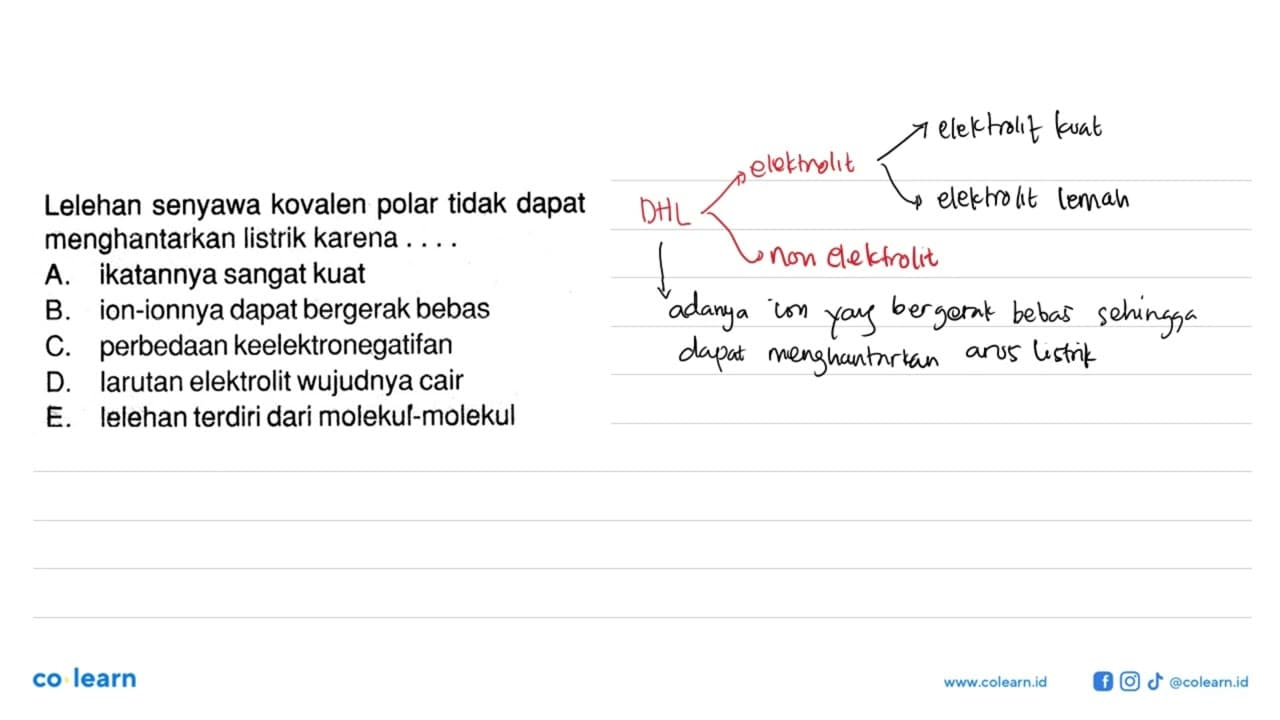 Lelehan senyawa kovalen polar tidak dapat
menghantarkan listrik karena . . . .
A. ikatannya sangat kuat
B. ion-ionnya dapat bergerak bebas
C. perbedaan keelektronegatifan
D. larutan elektrolit wujudnya cair
E. lelehan terdiri dari molekul-molekul
DHL
elektrolit
elektrolit kuat
elektrolit lemah
non elektrolit
adanya ion yang bergerak bebas sehingga
dapat menghantarkan arus listrik
co learn
www.colearn.id
@colearn.id